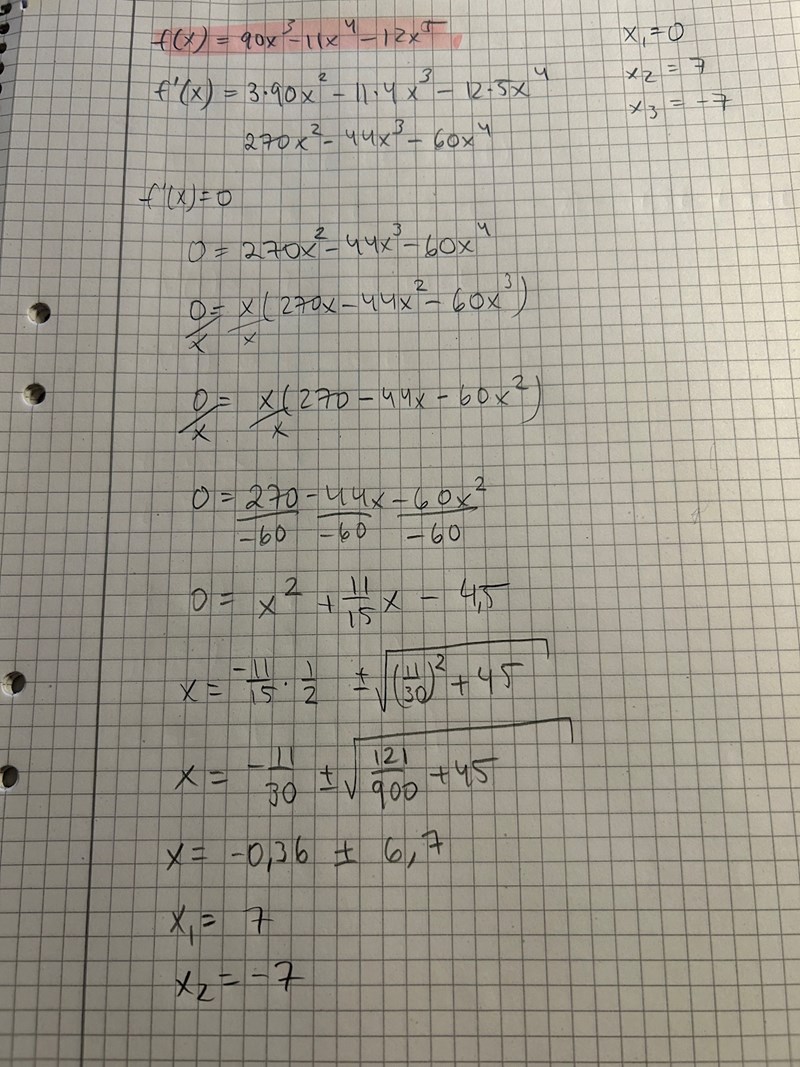 f(x) = 90x³ - 11x⁴ - 12x⁵
x₁ = 0
f'(x) = 3·90x² - 11·4x³ - 12·5x⁴
x₂ = 7
x₃ = -7
270x² - 44x³ - 60x⁴
f'(x) = 0
0 = 270x² - 44x³ - 60x⁴
0/x = x/x (270x - 44x² - 60x³)
0/x = x/x (270 - 44x - 60x²)
0 = 270/-60 - 44x/-60 - 60x²/-60
0 = x² + 11/15 x - 4,5
x = -11/15 · 1/2 ± √((11/30)² + 45)
x = -11/30 ± √(121/900 + 45)
x = -0,36 ± 6,7
x₁ = 7
x₂ = -7